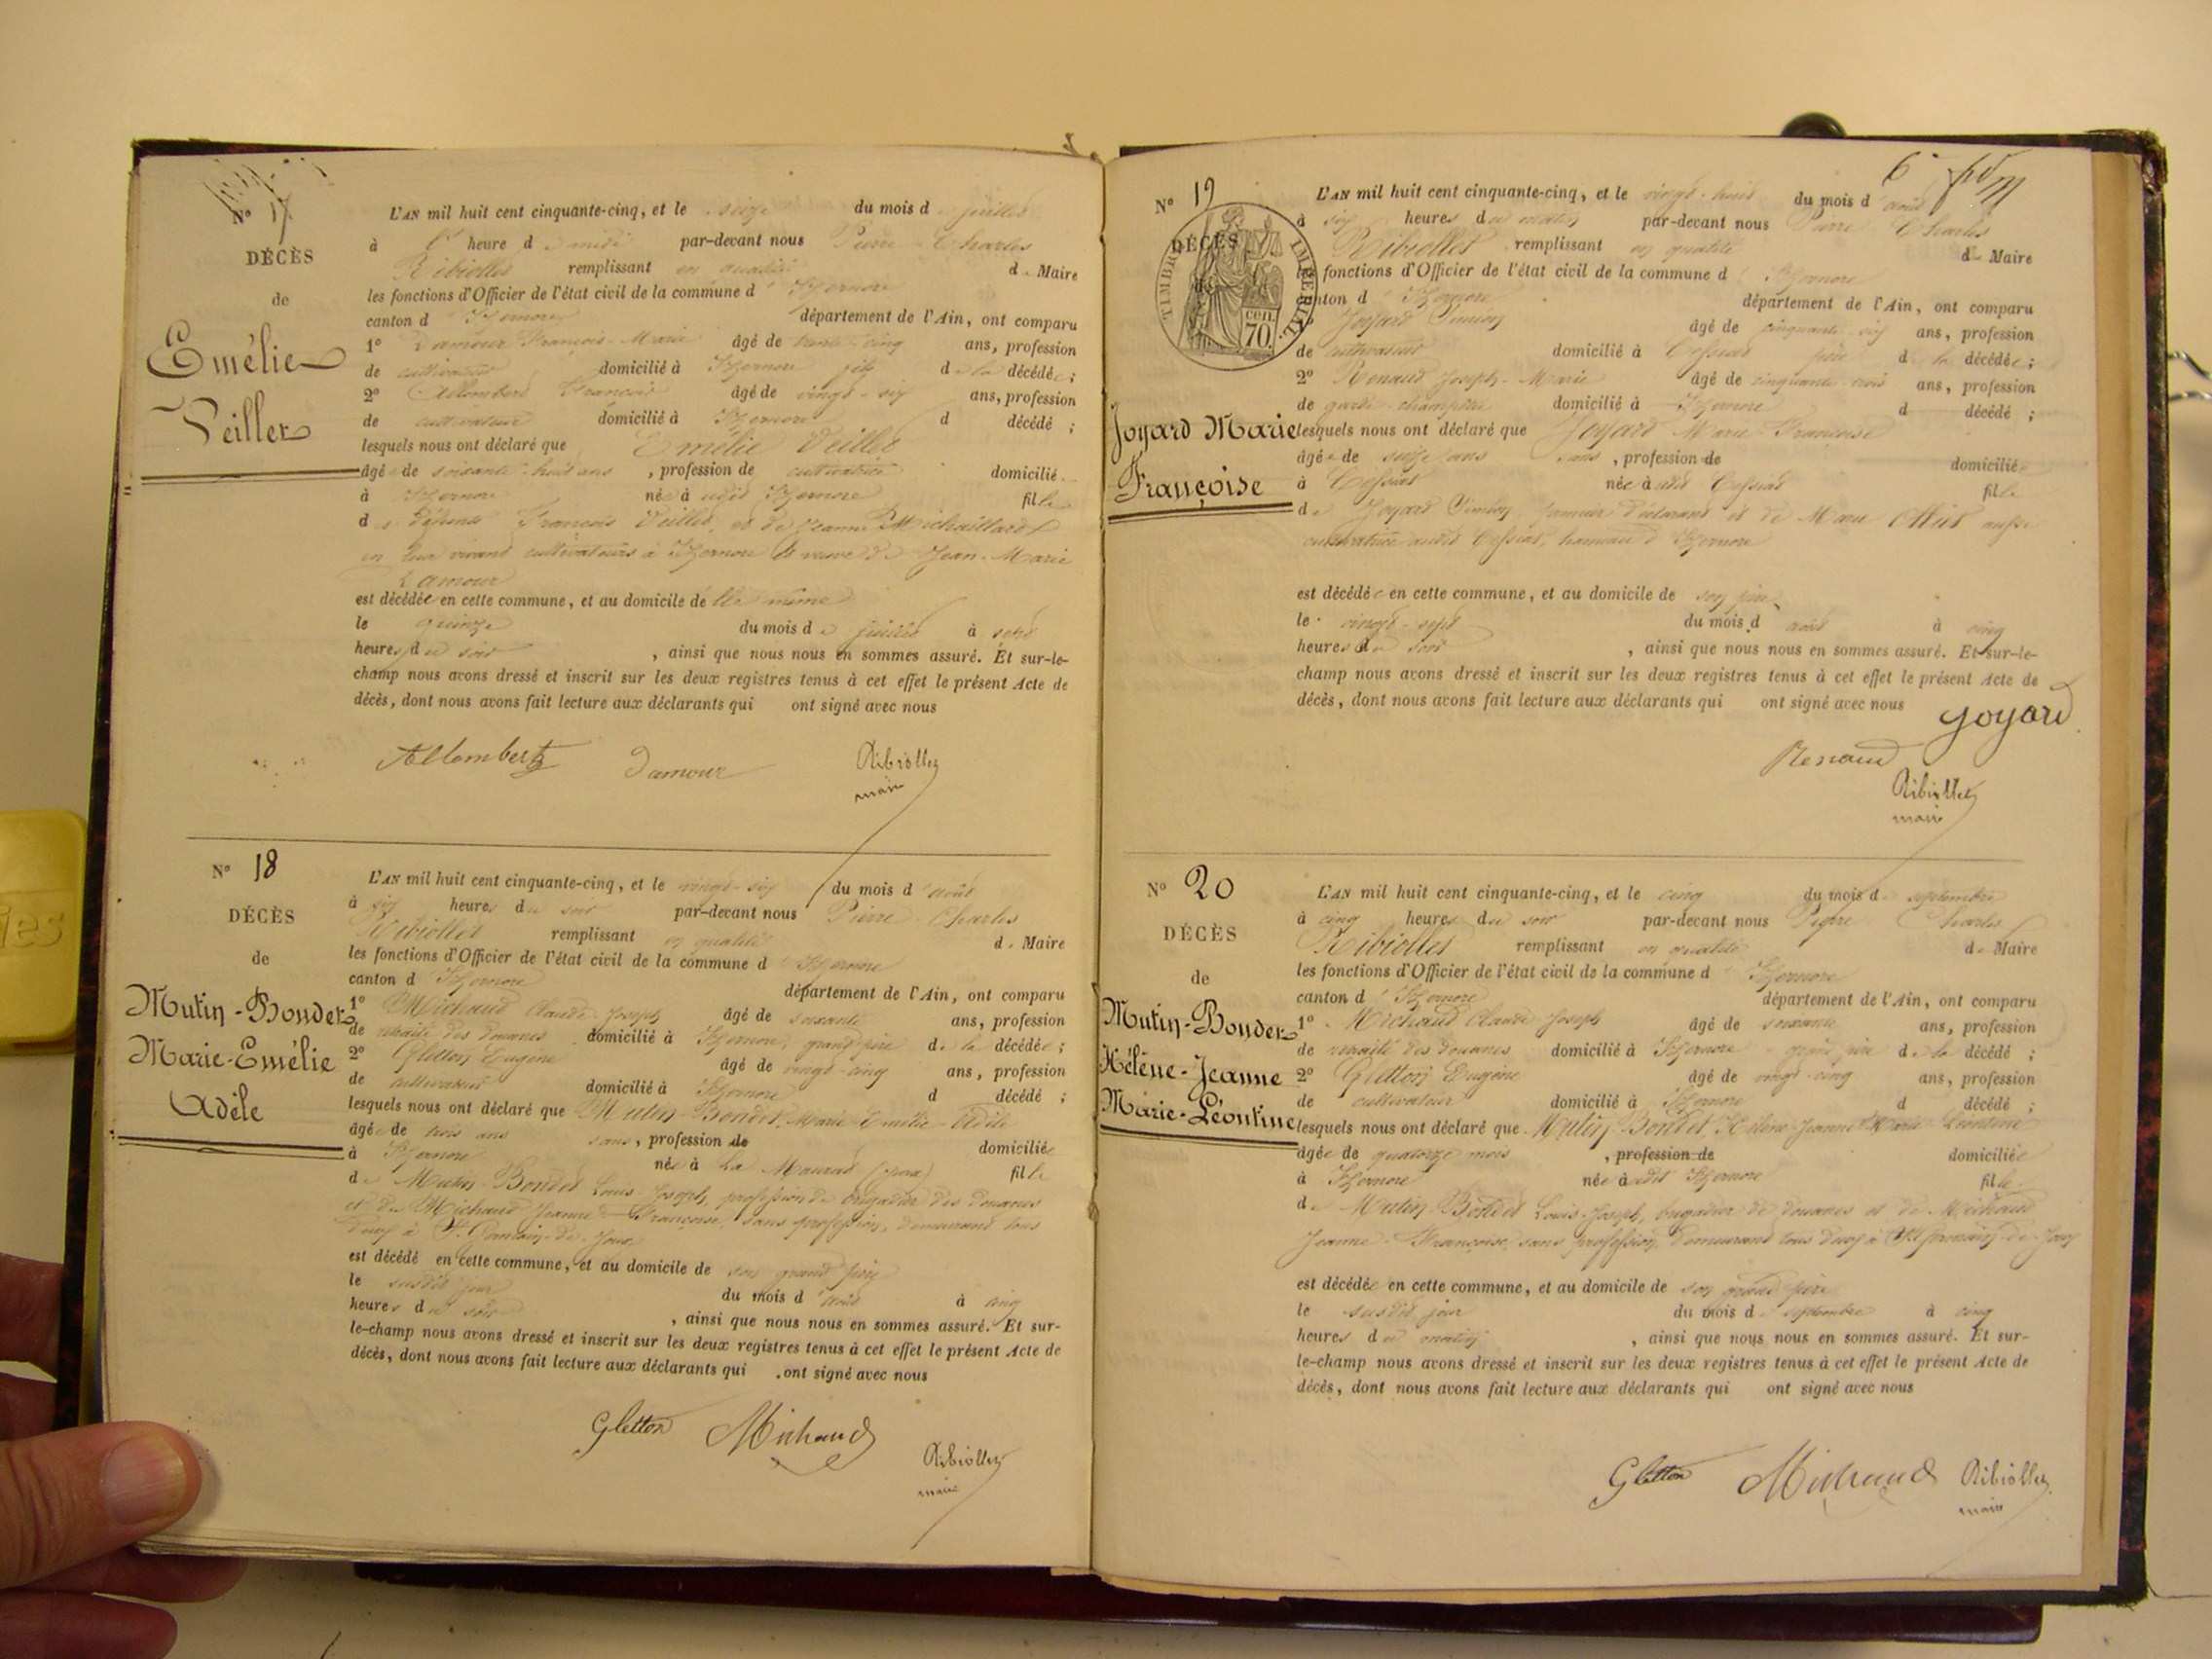 Nº 17
DÉCÈS
de
Emélie
Veillet
L'AN mil huit cent cinquante-cinq, et le seize du mois de juillet
à heure de midi par-devant nous Pierre Charles
Ribiollet remplissant en qualité de Maire
les fonctions d'Officier de l'état civil de la commune d'Izernore
canton d'Izernore département de l'Ain, ont comparu
1º Damour François-Marie âgé de trente-cinq ans, profession
de cultivateur domicilié à Izernore fils de la décédée ;
2º Allombert François âgé de vingt-six ans, profession
de cultivateur domicilié à Izernore d décédé ;
lesquels nous ont déclaré que Emélie Veillet
âgée de soixante-huit ans, profession de cultivatrice domiciliée
à Izernore née à udit Izernore fille
des défunts François Veillet, et de Jeanne Michaillard
en leur vivant cultivateurs à Izernore veuve de Jean-Marie
Damour
est décédée en cette commune, et au domicile de elle même
le quinze du mois de juillet à sept
heures du soir, ainsi que nous nous en sommes assuré. Et sur-le-
champ nous avons dressé et inscrit sur les deux registres tenus à cet effet le présent Acte de
décès, dont nous avons fait lecture aux déclarants qui ont signé avec nous
Allombert Damour Ribiollet
maire
Nº 18
DÉCÈS
de
Mutin-Bondet
Marie-Emélie
Adèle
L'AN mil huit cent cinquante-cinq, et le vingt-six du mois d'août
à six heures du soir par-devant nous Pierre Charles
Ribiollet remplissant en qualité de Maire
les fonctions d'Officier de l'état civil de la commune d'Izernore
canton d'Izernore département de l'Ain, ont comparu
1º Michaud Claude Joseph âgé de soixante ans, profession
de retraité des douanes domicilié à Izernore, grand père de la décédée ;
2º Gletton Eugène âgé de vingt-cinq ans, profession
de cultivateur domicilié à Izernore d décédé ;
lesquels nous ont déclaré que Mutin Bondet Marie Emélie-Adèle
âgée de trois ans sans, profession de domiciliée
à Izernore née à La (Jura) fille
de Mutin-Bondet Louis-Joseph, profession de brigadier des douanes
et de Michaud Jeanne-Françoise, sans profession, demeurant tous
deux à St Germain-de-Joux
est décédé en cette commune, et au domicile de son grand père
le susdit jour du mois d'août à cinq
heures du soir, ainsi que nous nous en sommes assuré. Et sur-
le-champ nous avons dressé et inscrit sur les deux registres tenus à cet effet le présent Acte de
décès, dont nous avons fait lecture aux déclarants qui ont signé avec nous
Gletton Michaud Ribiollet
maire
6
Nº 19
DÉCÈS
TIMBRE IMPÉRIAL
70 cen.
Joyard Marie
Françoise
L'AN mil huit cent cinquante-cinq, et le vingt-huit du mois d'août
à six heures du matin par-devant nous Pierre Charles
Ribiollet remplissant en qualité de Maire
les fonctions d'Officier de l'état civil de la commune d'Izernore
canton d'Izernore département de l'Ain, ont comparu
Joyard Siméon âgé de cinquante-six ans, profession
de cultivateur domicilié à Cessiat père de la décédée ;
2º Renaud Joseph-Marie âgé de cinquante-trois ans, profession
de garde-champêtre domicilié à Izernore d décédé ;
lesquels nous ont déclaré que Joyard Marie-Françoise
âgée de seize ans sans, profession de domiciliée
à Cessiat née à udit Cessiat fille
de Joyard Siméon, premier déclarant et de Marie aussi
cultivatrice audit Cessiat, hameau d'Izernore
est décédée en cette commune, et au domicile de son père
le vingt-sept du mois d'août à cinq
heures du soir, ainsi que nous nous en sommes assuré. Et sur-le-
champ nous avons dressé et inscrit sur les deux registres tenus à cet effet le présent Acte de
décès, dont nous avons fait lecture aux déclarants qui ont signé avec nous
Joyard
Renaud
Ribiollet
maire
Nº 20
DÉCÈS
de
Mutin-Bondet
Hélène-Jeanne
Marie-Léontine
L'AN mil huit cent cinquante-cinq, et le cinq du mois de septembre
à cinq heures du soir par-devant nous Pierre Charles
Ribiollet remplissant en qualité de Maire
les fonctions d'Officier de l'état civil de la commune d'Izernore
canton d'Izernore département de l'Ain, ont comparu
1º Michaud Claude Joseph âgé de soixante ans, profession
de retraité des douanes domicilié à Izernore grand père de la décédé ;
2º Gletton Eugène âgé de vingt-cinq ans, profession
de cultivateur domicilié à Izernore d décédé ;
lesquels nous ont déclaré que Mutin Bondet Hélène Jeanne Marie Léontine
âgée de quatorze mois, profession de domiciliée
à Izernore née à udit Izernore fille
de Mutin Bondet Louis-Joseph, brigadier de douanes et de Michaud
Jeanne-Françoise, sans profession, demeurant tous deux à St Germain-de-Joux
est décédée en cette commune, et au domicile de son grand père
le susdit jour du mois de septembre à cinq
heures du matin, ainsi que nous nous en sommes assuré. Et sur-
le-champ nous avons dressé et inscrit sur les deux registres tenus à cet effet le présent Acte de
décès, dont nous avons fait lecture aux déclarants qui ont signé avec nous
Gletton Michaud Ribiollet
maire